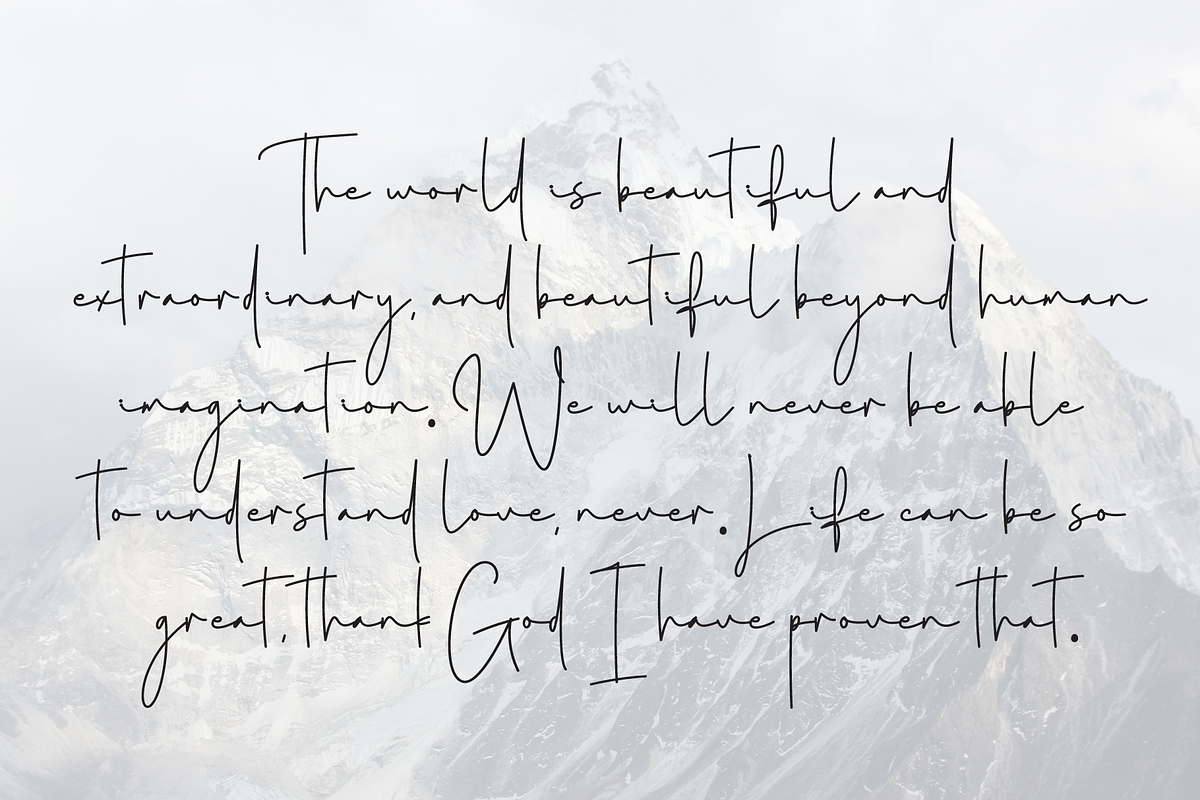 The world is beautiful and
extraordinary, and beautiful beyond human
imagination. We will never be able
to understand love, never. Life can be so
great, thank God I have proven that.